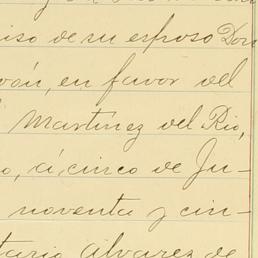 iso de su esposo Don
ón, en favor del
Martínez del Rio,
o, á cinco de Ju-
noventa y cin-
tario Alvarez de